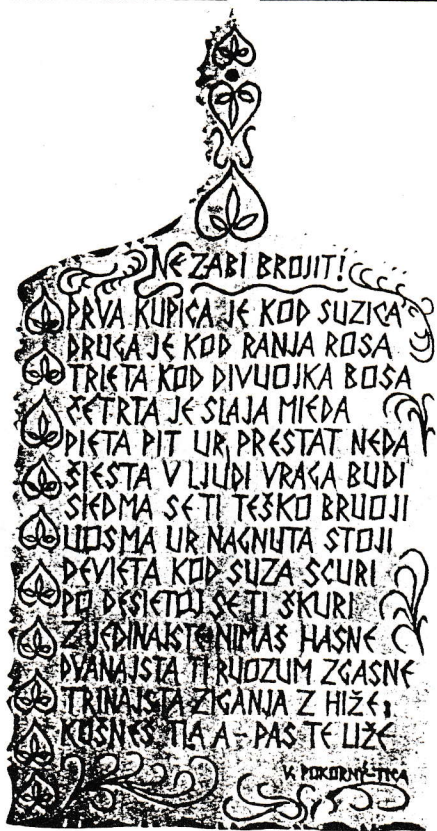 NE ZABI BROJIT!
PRVA KUPICA JE KOD SUZICA
DRUGA JE KOD RANJA ROSA
TRIETA KOD DIVUOJKA BOSA
ČETRTA JE SLAJA MIEDA
PIETA PIT UR PRESTAT NEDA
ŠIESTA V LJUDI VRAGA BUDI
SIEDMA SE TI TEŠKO BRUOJI
UOSMA UR NAGNUTA STOJI
DEVIETA KOD SUZA SCURI
PO DESIETOJ SE TI ŠKURI
Z JEDINAJSTE NIMAŠ HASNE
DVANAJSTA TI RUOZUM ZGASNE
TRINAJSTA ZIGANJA Z HIŽE:
KOŠNEŠ TLA A - PAS TE LIŽE
V. POKORNÝ-TICA